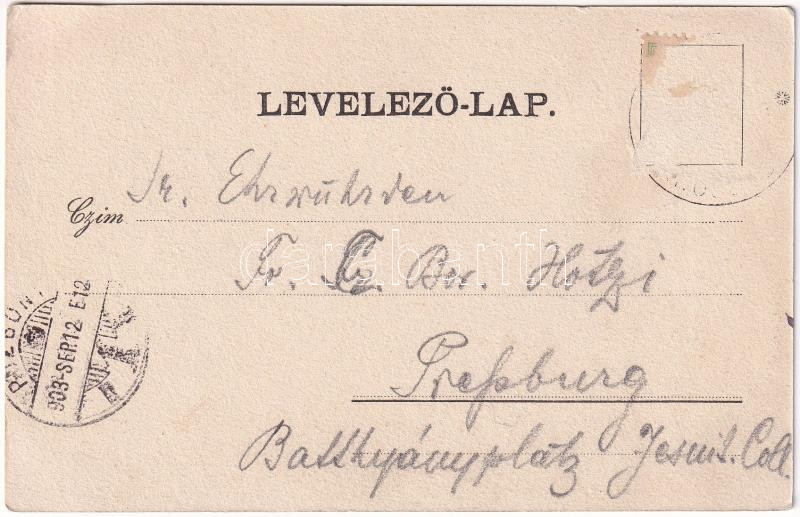 LEVELEZÖ-LAP.
Sr. Ehrwührden
Czim
Fr. Ber. Hotzi
Preßburg
Batthyányplatz Jesuit. Coll.
POZSONY
903-SEP.12 E12
darabanth